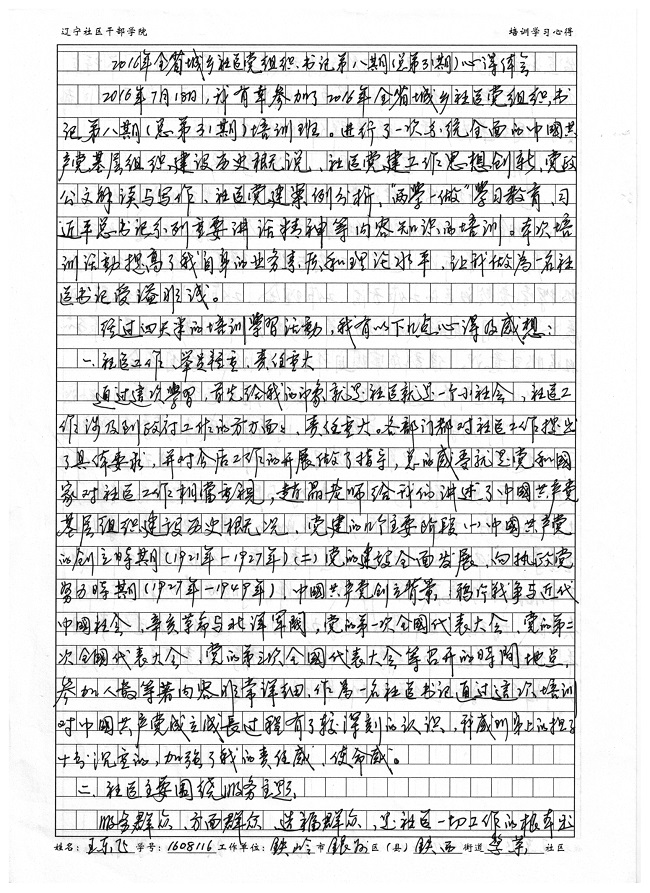 辽宁社区干部学院 培训学习心得
2016年全省城乡社区党组织书记第八期(总第31期)心得体会
2016年7月18日,我有幸参加了2016年全省城乡社区党组织书
记第八期(总第31期)培训班。进行了一次系统全面的中國共
产党基层组织建设历史概况说、社区党建工作思想创新、党政
公文解读与写作、社区党建案例分析、"两學一做"學习教育、习
近平总书记系列重要讲话精神等内容知识的培训。本次培
训活動提高了我自身的业务素质和理论水平,让我做為一名社
区书记受益非浅。
经过四天半的培训學習活動,我有以下几点心得及感想:
一、社区工作,举足轻重,责任重大
通过这次學習,首先给我的印象就是社区就是一个小社会,社区工
作涉及到政府工作的方方面面,责任重大。各部门都对社区工作提出
了具体要求,并对今后工作的开展做了指导,总的感受就是党和國
家对社区工作相當重視,赵晶老师给我们讲述了中國共产党
基层组织建设历史概况,党建的几个主要阶段(一)中國共产党
的创立時期(1921年-1927年)(二)党的建设全面发展,向执政党
努力時期(1927年-1949年),中國共产党创立背景,鸦片战争与近代
中國社会,辛亥革命与北洋軍閥,党的第一次全國代表大会,党的第二
次全國代表大会、党的第三次全國代表大会等召开的時間地点,
参加人数等等内容非常详细,作為一名社区书记通过這次培训
对中國共产党成立成長过程有了较深刻的认识,我感到身上的担子
十分沉重的,加强了我的责任感、使命感。
二、社区主要圍绕服务主题,
服务群众、方面群众、造福群众,是社区一切工作的根本出
姓名: 王东飞 学号: 1608116 工作单位: 铁岭 市 银州 区(县) 铁西 街道 繁荣 社区